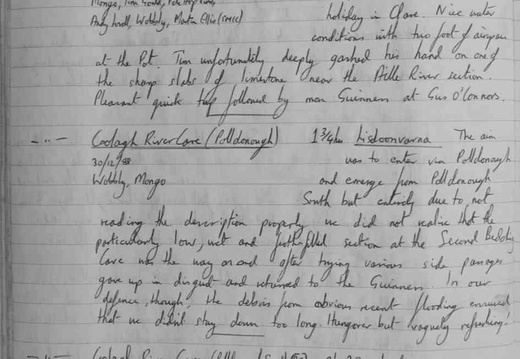 Mongo, Tim Gould, Pete Hopkins,
Andy Lovell, Wobbly, Martin Ellis (MCC) holiday in Clare. Nice water
conditions with two foot of airspace
at the Pot. Tim unfortunately deeply gashed his hand on one of
the sharp slabs of limestone near the Aille River section.
Pleasant quick trip followed by more Guinness at Gus O'Connors.
- " - Coolagh River Cave (Polldonough) 1 3/4 hrs Lisdoonvarna The aim
30/12/98 was to enter via Polldonough
Wobbly, Mongo and emerge from Polldonough
South but entirely due to not
reading the description properly we did not realise that the
particularly low, wet and filth filled section at the Second Bedding
Cave was the way on and after trying various side passages
gave up in disgust and returned to the Guinness. In our
defence, though, the debris from obvious recent flooding ensured
that we didn't stay down too long. Hungover but vaguely refreshing!
- " - Coolagh River Cave